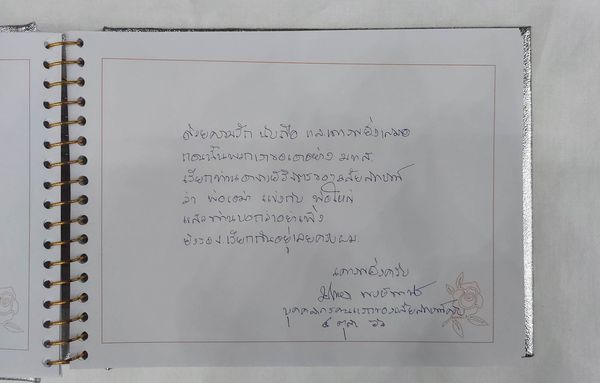 ด้วยความรัก นับถือ และเคารพยิ่งเสมอ
ตอนนั้นพวกเราขอเอาอย่าง มทส.
เรียกท่านอาจารย์วิจิตรของวลัยลักษณ์
ว่า พ่อเฒ่า แข่งกับ พ่อใหญ่
และท่านบอกว่าอย่าเพิ่ง
ยังรอง เรียกกันอยู่เลยครับผม.
เคารพยิ่งครับ
บุคลากรคนแรกของวลัยลักษณ์
๕ ตุลา